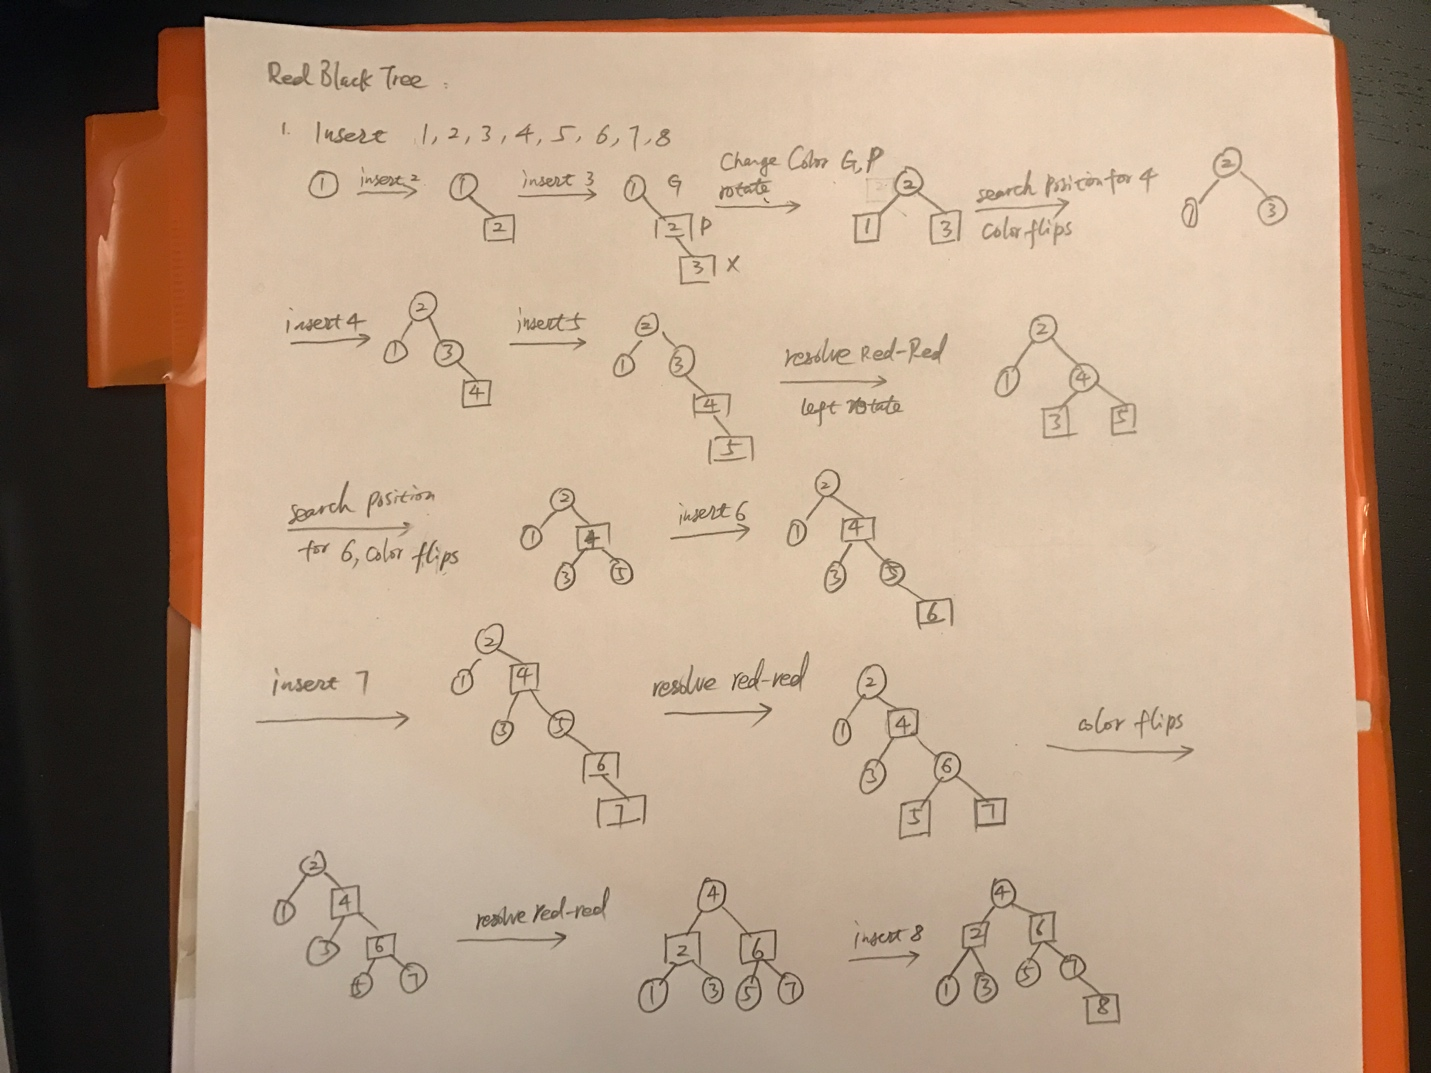 Red Black Tree :
1. Insert 1, 2, 3, 4, 5, 6, 7, 8
1 insert 2 1 2 insert 3 1 G 2 P 3 X Change Color G, P rotate 2 1 3 search position for 4 color flips 2 1 3
insert 4 2 1 3 4 insert 5 2 1 3 4 5 resolve Red-Red left rotate 2 1 4 3 5
search position for 6, color flips 2 1 4 3 5 insert 6 2 1 4 3 5 6
insert 7 2 1 4 3 5 6 7 resolve red-red 2 1 4 3 6 5 7 color flips
2 1 4 3 6 5 7 resolve red-red 4 2 6 1 3 5 7 insert 8 4 2 6 1 3 5 7 8